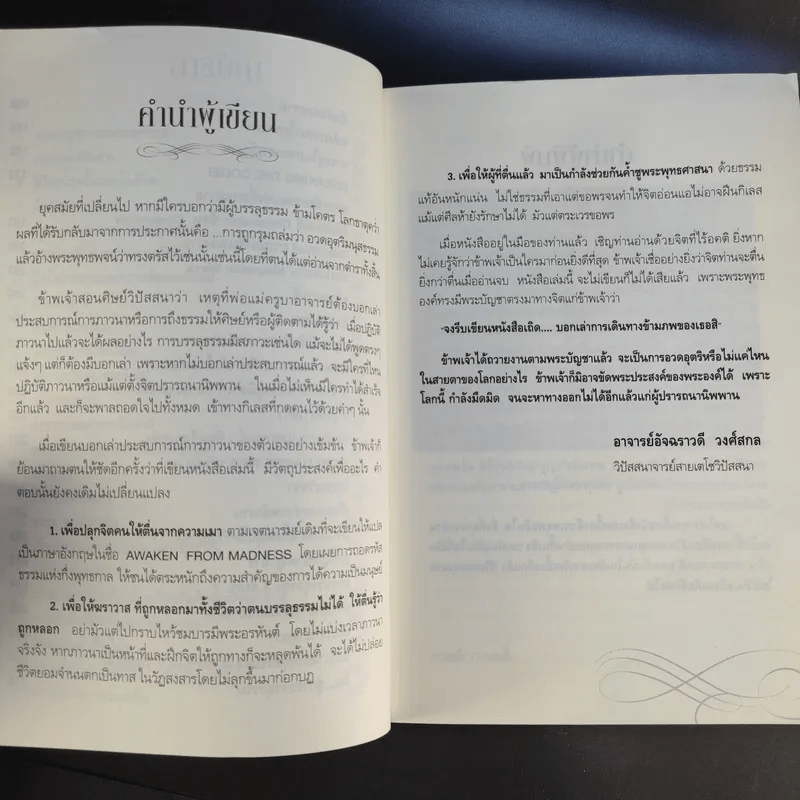 คำนำผู้เขียน
ยุคสมัยที่เปลี่ยนไป หากมีใครบอกว่ามีผู้บรรลุธรรม ข้ามโคตร โลกธาตุคว่ำ
ผลที่ได้รับกลับมาจากการประกาศนั้นคือ ...การถูกรุมถล่มว่า อวดอุตริมนุสธรรม
แล้วอ้างพระพุทธพจน์ว่าทรงตรัสไว้เช่นนั้นเช่นนี้โดยที่ตนได้แต่อ่านจากตำราทั้งสิ้น
ข้าพเจ้าสอนศิษย์วิปัสสนาว่า เหตุที่พ่อแม่ครูบาอาจารย์ต้องบอกเล่า
ประสบการณ์การภาวนาหรือการถึงธรรมให้ศิษย์หรือผู้ติดตามได้รู้ว่า เมื่อปฏิบัติ
ภาวนาไปแล้วจะได้ผลอย่างไร การบรรลุธรรมมีสภาวะเช่นใด แม้จะไม่ได้พูดตรงๆ
แจ้งๆ แต่ก็ต้องมีบอกเล่า เพราะหากไม่บอกเล่าประสบการณ์แล้ว จะมีใครที่ไหน
ปฏิบัติภาวนาหรือแม้แต่ตั้งจิตปรารถนานิพพาน ในเมื่อไม่เห็นมีใครทำได้สำเร็จ
อีกแล้ว และก็จะพาลถอดใจไปทั้งหมด เข้าทางกิเลสที่กดคนไว้ด้วยคำๆ นั้น
เมื่อเขียนบอกเล่าประสบการณ์การภาวนาของตัวเองอย่างเข้มข้น ข้าพเจ้าก็
ย้อนมาถามตนให้ชัดอีกครั้งว่าที่เขียนหนังสือเล่มนี้ มีวัตถุประสงค์เพื่ออะไร คำ
ตอบนั้นยังคงเดิมไม่เปลี่ยนแปลง
1. เพื่อปลุกจิตคนให้ตื่นจากความเมา ตามเจตนารมย์เดิมที่จะเขียนให้แปล
เป็นภาษาอังกฤษในชื่อ AWAKEN FROM MADNESS โดยเผยการถอดรหัส
ธรรมแห่งกึ่งพุทธกาล ให้ชนได้ตระหนักถึงความสำคัญของการได้ความเป็นมนุษย์
2. เพื่อให้ฆราวาส ที่ถูกหลอกมาทั้งชีวิตว่าตนบรรลุธรรมไม่ได้ ให้ตื่นรู้ว่า
ถูกหลอก อย่ามัวแต่ไปกราบไหว้ชมบารมีพระอรหันต์ โดยไม่แบ่งเวลาภาวนา
จริงจัง หากภาวนาเป็นหน้าที่และฝึกจิตให้ถูกทางก็จะหลุดพ้นได้ จะได้ไม่ปล่อย
ชีวิตยอมจำนนตกเป็นทาส ในวัฏสงสารโดยไม่ลุกขึ้นมาก่อกบฏ
3. เพื่อให้ผู้ที่ตื่นแล้ว มาเป็นกำลังช่วยกันค้ำชูพระพุทธศาสนา ด้วยธรรม
แท้อันหนักแน่น ไม่ใช่ธรรมที่เอาแต่ขอพรจนทำให้จิตอ่อนแอไม่อาจฝืนกิเลส
แม้แต่ศีลห้ายังรักษาไม่ได้ มัวแต่ตระเวรขอพร
เมื่อหนังสืออยู่ในมือของท่านแล้ว เชิญท่านอ่านด้วยจิตที่ไร้อคติ ยิ่งหาก
ไม่เคยรู้จักว่าข้าพเจ้าเป็นใครมาก่อนยิ่งดีที่สุด ข้าพเจ้าเชื่ออย่างยิ่งว่าจิตท่านจะตื่น
ยิ่งกว่าตื่นเมื่ออ่านจบ หนังสือเล่มนี้ จะไม่เขียนก็ไม่ได้เสียแล้ว เพราะพระพุทธ
องค์ทรงมีพระบัญชาตรงมาทางจิตแก่ข้าพเจ้าว่า
"จงรีบเขียนหนังสือเถิด.... บอกเล่าการเดินทางข้ามภพของเธอสิ"
ข้าพเจ้าได้ถวายงานตามพระบัญชาแล้ว จะเป็นการอวดอุตริหรือไม่แค่ไหน
ในสายตาของโลกอย่างไร ข้าพเจ้าก็มิอาจขัดพระประสงค์ของพระองค์ได้ เพราะ
โลกนี้ กำลังมืดมิด จนจะหาทางออกไม่ได้อีกแล้วแก่ผู้ปรารถนานิพพาน
อาจารย์อัจฉราวดี วงศ์สกล
วิปัสสนาจารย์สายเตโชวิปัสสนา